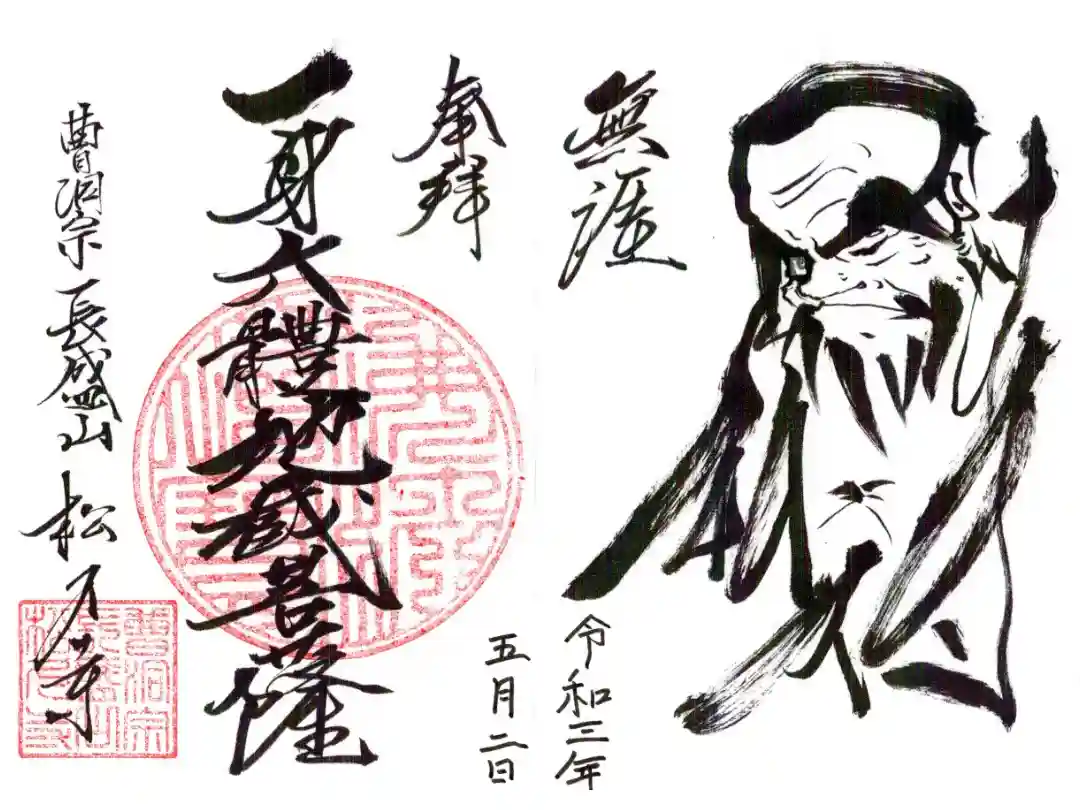 無涯
令和三年
五月二日
奉拝
一身六體地蔵菩薩
曹洞宗長盛山
松月寺